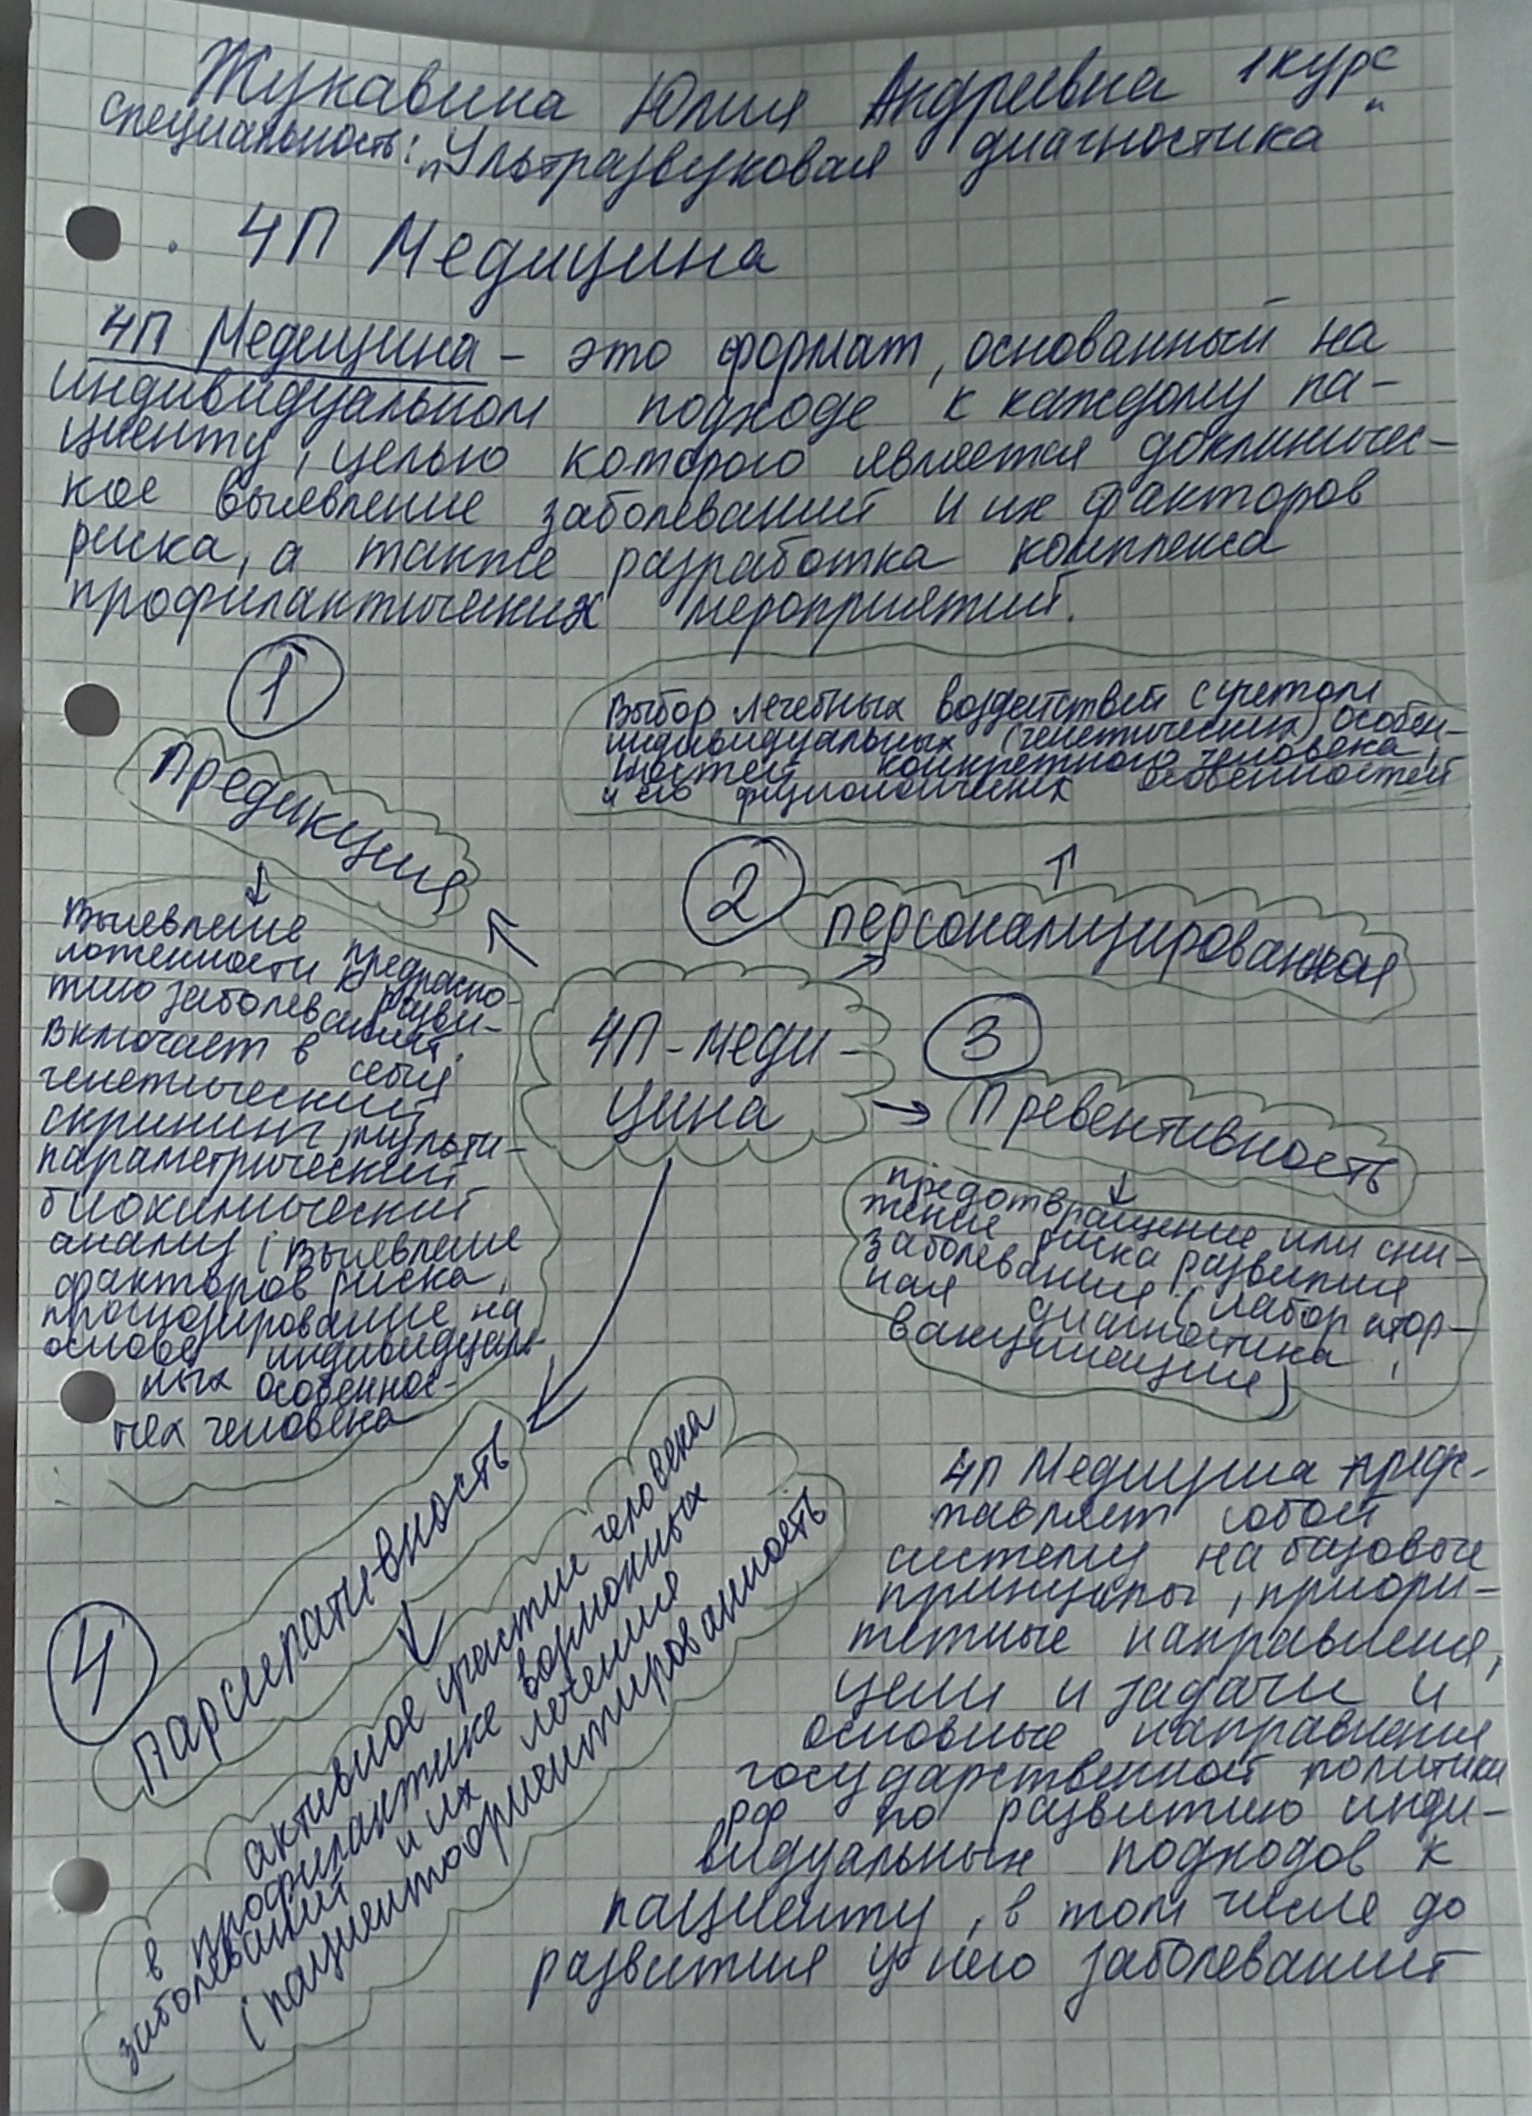 Жукавина Юлия Андреевна 1 курс
специальность: „Ультразвуковая диагностика"
4П Медицина
4П Медицина – это формат, основанный на
индивидуальном подходе к каждому па-
циенту, целью которого является доклиничес-
кое выявление заболеваний и их факторов
риска, а также разработка комплекса
профилактических мероприятий.
1
Предикция
Выявление
предраспо-
ложенности к разви-
тию заболеваний.
Включает в себя
генетический
скрининг, мульти-
параметрический
биохимический
анализ (Выявление
факторов риска,
прогнозирование на
основе индивидуаль-
ных особеннос-
тях человека
Выбор лечебных воздействий с учетом
индивидуальных (генетических) особен-
ностей конкретного человека,
и его физиологических особенностей
2
персонализированная
4П-меди-
цина
3
Превентивность
предотвращение или сни-
жение риска развития
заболевания (лаборатор-
ная диагностика,
вакцинация)
4
Парсиперативность
активное участие человека
в профилактике возможных
заболеваний и их лечения
(пациентоориентированность
4П Медицина предс-
тавляет собой
систему на базовые
принципы, приори-
тетные направления,
цели и задачи и
основные направления
государственной политики
РФ по развитию инди-
видуальных подходов к
пациенту, в том числе до
развития у него заболеваний